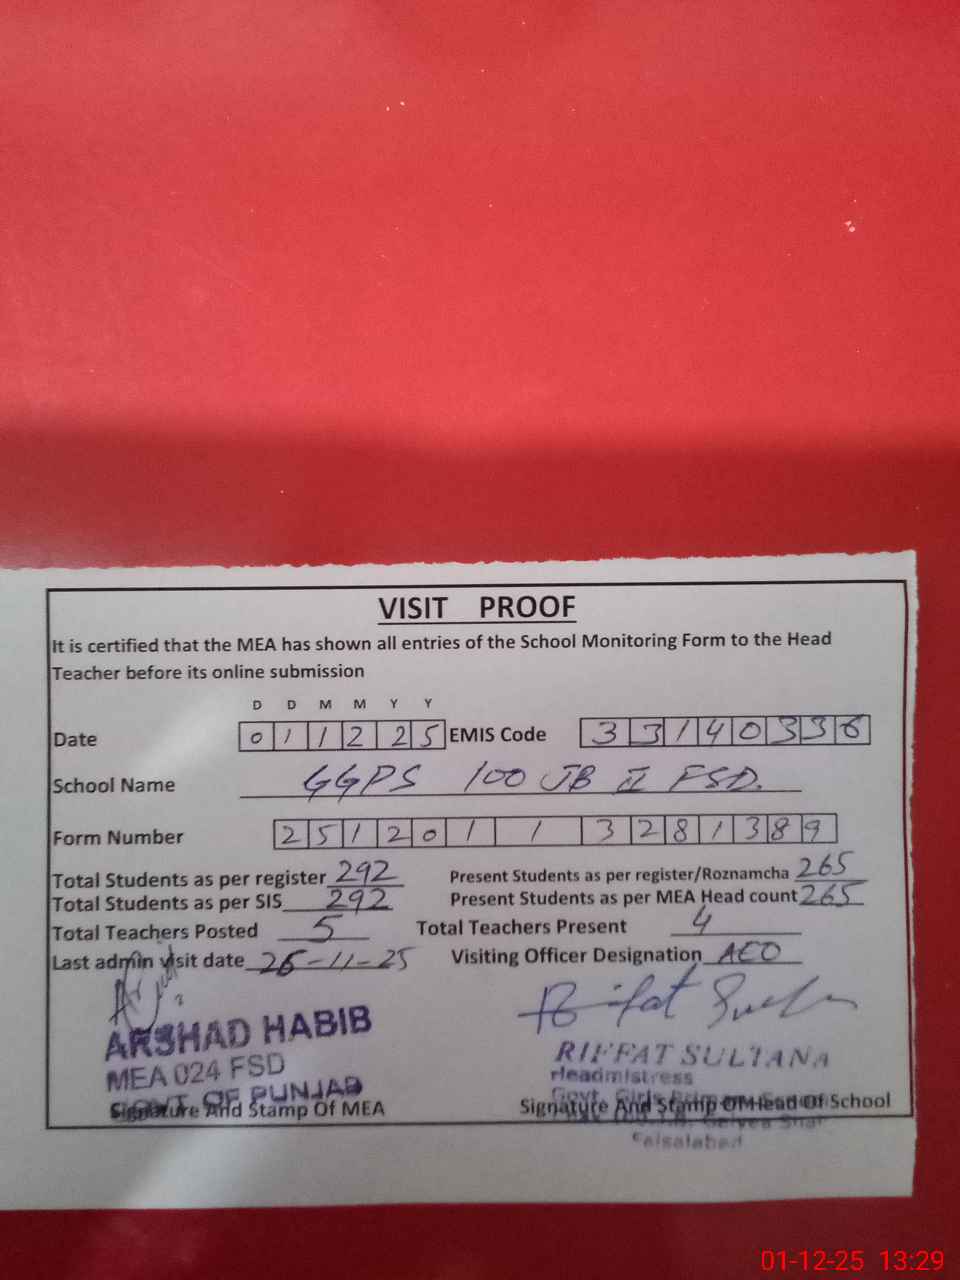 VISIT PROOF
It is certified that the MEA has shown all entries of the School Monitoring Form to the Head
Teacher before its online submission
D D M M Y Y
Date 0 1 1 2 2 5 EMIS Code 3 3 1 4 0 3 3 6
School Name GGPS 100 JB II FSD.
Form Number 2 5 1 2 0 1 1 3 2 8 1 3 8 9
Total Students as per register 292 Present Students as per register/Roznamcha 265
Total Students as per SIS 292 Present Students as per MEA Head count 265
Total Teachers Posted 5 Total Teachers Present 4
Last admin visit date 26-11-25 Visiting Officer Designation AEO
Riffat Sul
ARSHAD HABIB RIFFAT SULTANA
MEA 024 FSD Headmistress
GOVT. OF PUNJAB Govt. Girls
Signature And Stamp Of MEA Signature And Stamp Of Head Of School
Faisalabad
01-12-25 13:29